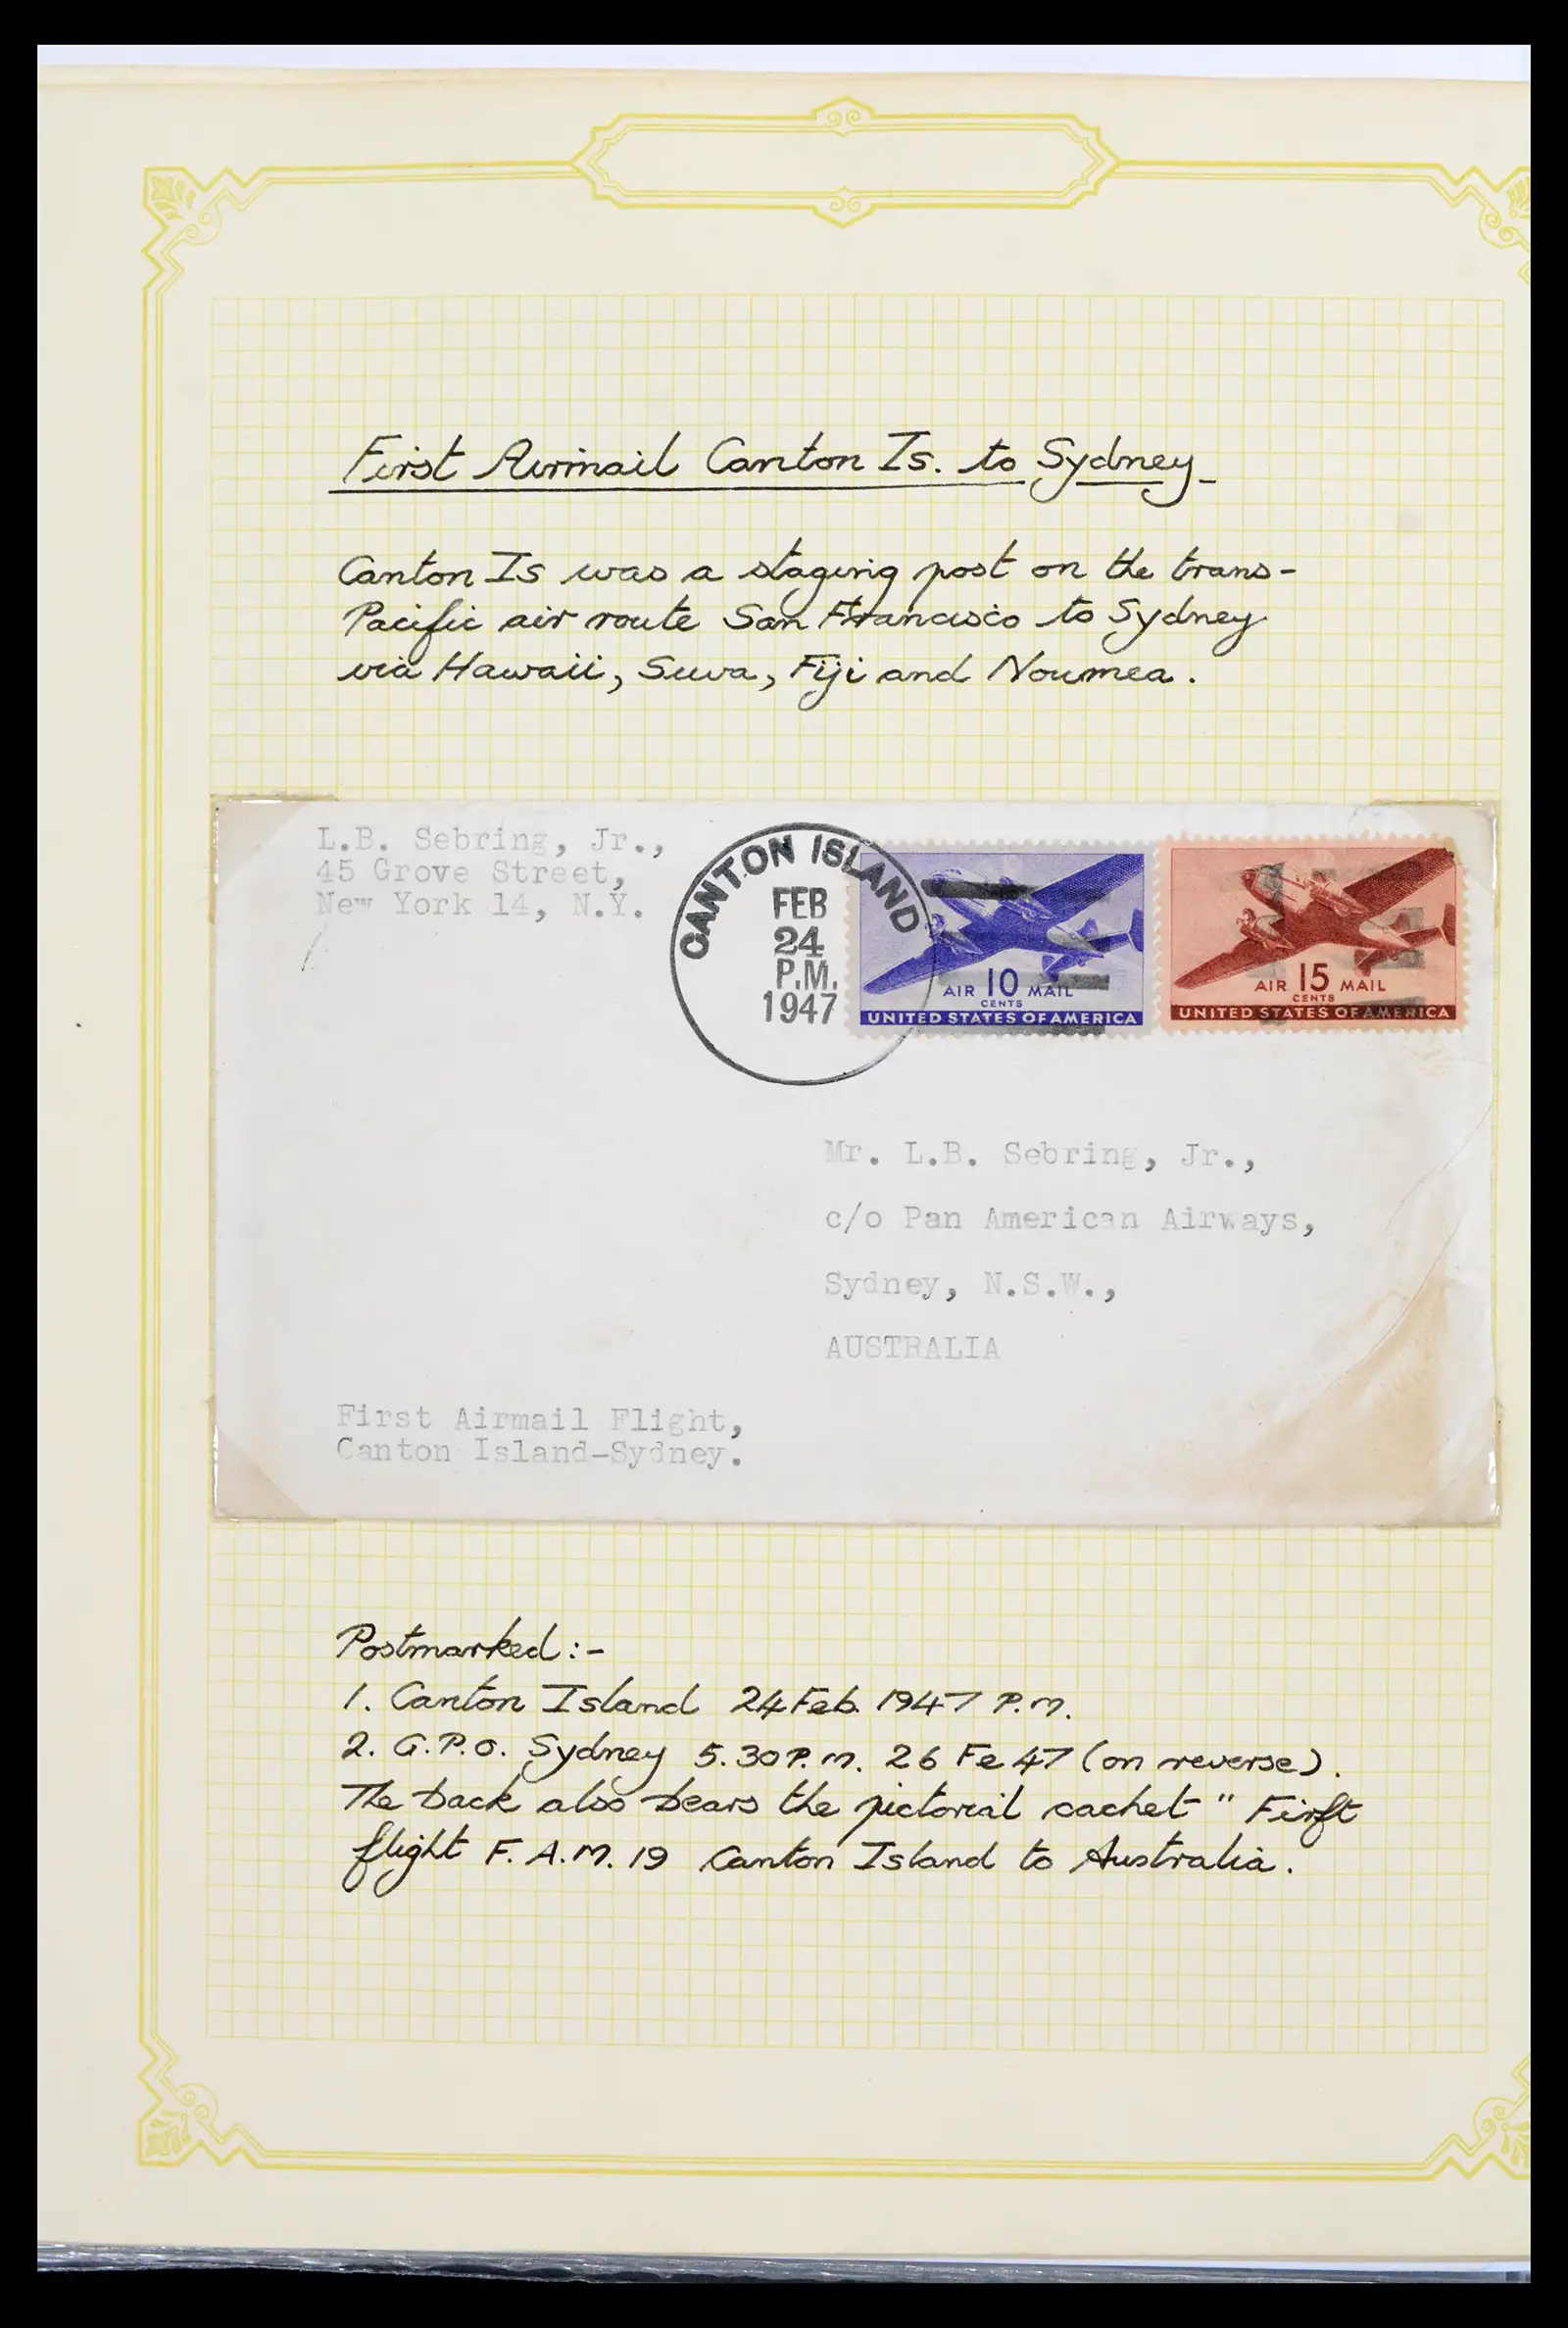 First Airmail Canton Is. to Sydney
Canton Is was a staging post on the trans-
Pacific air route San Francisco to Sydney
via Hawaii, Suva, Fiji and Noumea.
L.B. Sebring, Jr.,
45 Grove Street,
New York 14, N.Y.
CANTON ISLAND
FEB
24
P.M.
1947
AIR 10 MAIL
CENTS
UNITED STATES OF AMERICA
AIR 15 MAIL
CENTS
UNITED STATES OF AMERICA
Mr. L.B. Sebring, Jr.,
c/o Pan American Airways,
Sydney, N.S.W.,
AUSTRALIA
First Airmail Flight,
Canton Island-Sydney.
Postmarked:-
1. Canton Island 24 Feb. 1947 P.m.
2. G.P.O. Sydney 5.30 P.m. 26 Fe 47 (on reverse).
The back also bears the pictorial cachet " First
flight F.A.M. 19 Canton Island to Australia.